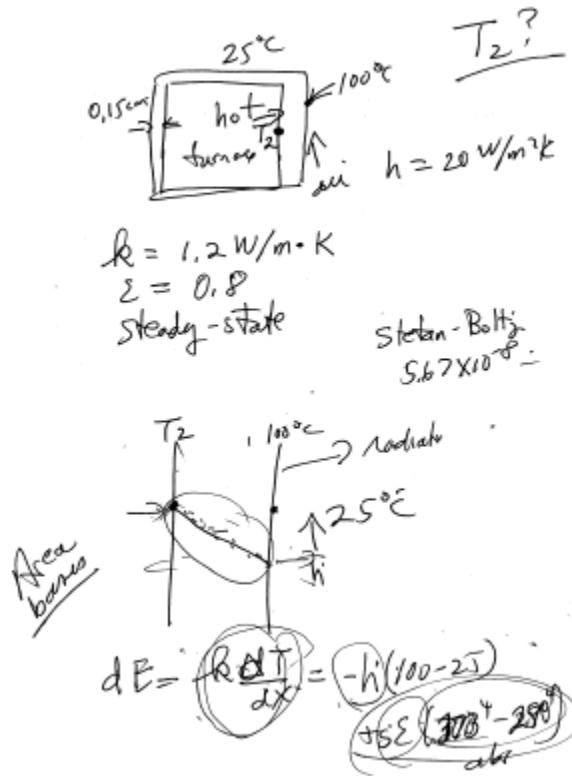 T₂?
25°C
100°C
0,15cm
hot
T₂
furnace
air
h = 20 W/m²K
k = 1.2 W/m·K
ε = 0.8
steady-state
Stefan-Boltz
5.67×10⁻⁸ =
T₂
100°C
radiate
25°C
h
Area
basis
dE = -k dT/dx = -h(100-25)
+5ε (373⁴-298⁴)
abs